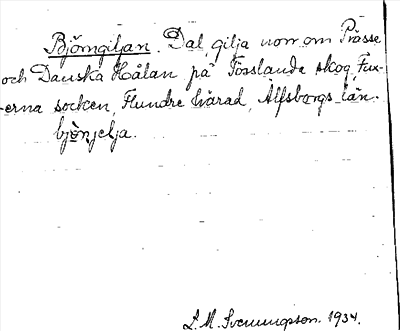 Björngiljan. Dal, gilja norr om Prässe
och Danska Hålan på Torslanda skog, Fux-
erna socken, Flundre härad, Älfsborgs län.
björnjelja.
S. M. Svenungson. 1934.